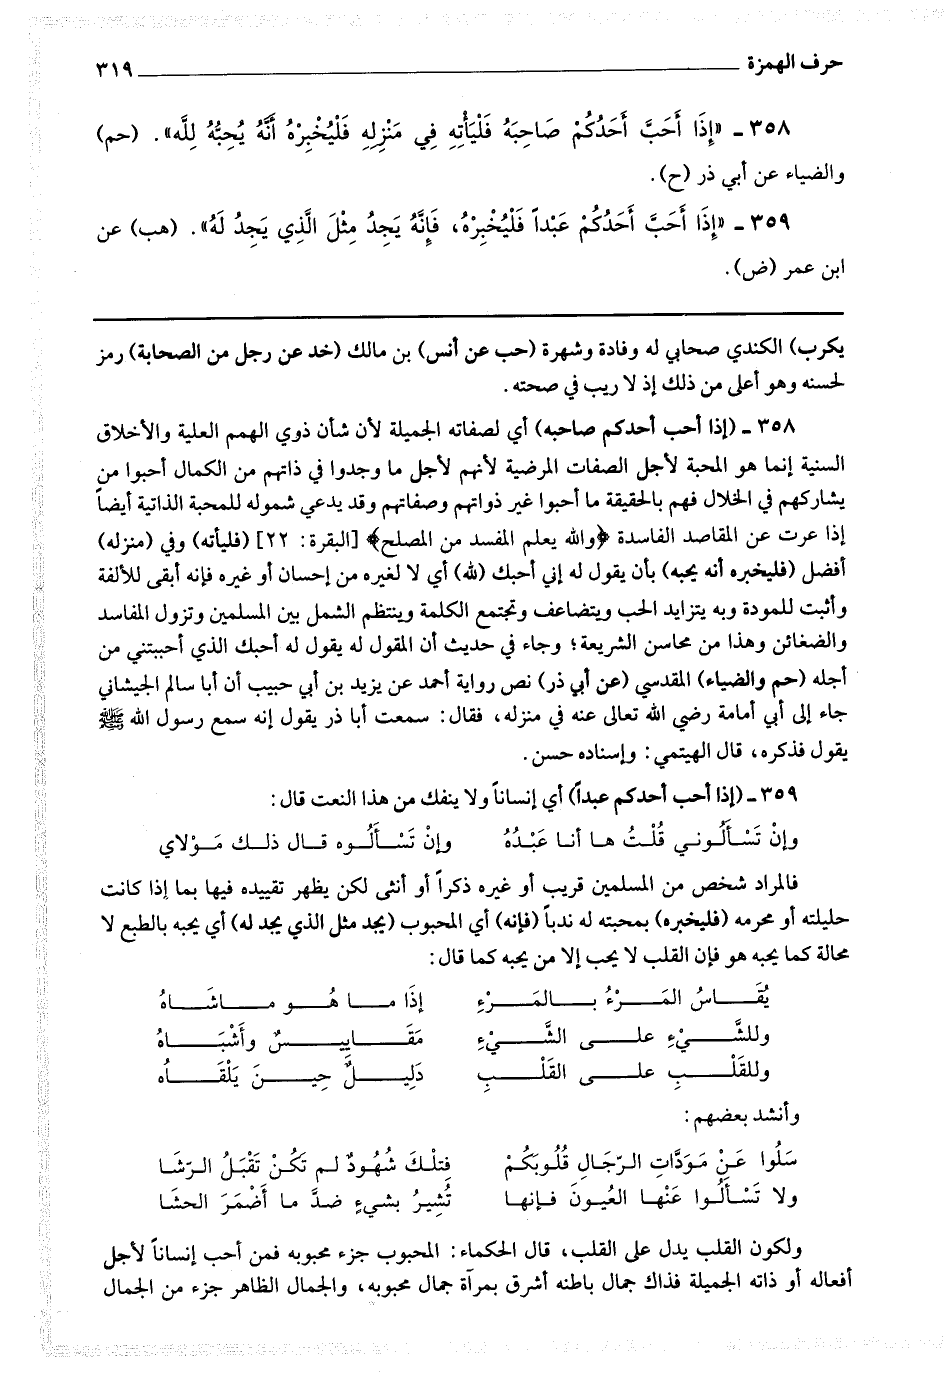 حرف الهمزة ٣١٩
٣٥٨ ـ «إِذَا أَحَبَّ أَحَدُكُمْ صَاحِبَهُ فَلْيَأْتِهِ فِي مَنْزِلِهِ فَلْيُخْبِرْهُ أَنَّهُ يُحِبُّهُ لِلَّه». (حم)
والضياء عن أبي ذر (ح).
٣٥٩ ـ «إِذَا أَحَبَّ أَحَدُكُمْ عَبْداً فَلْيُخْبِرْهُ، فَإِنَّهُ يَجِدُ مِثْلَ الَّذِي يَجِدُ لَهُ». (هب) عن
ابن عمر (ض).
يكرب) الكندي صحابي له وفادة وشهرة (حب عن أنس) بن مالك (خد عن رجل من الصحابة) رمز
لحسنه وهو أعلى من ذلك إذ لا ريب في صحته.
٣٥٨ ـ (إذا أحب أحدكم صاحبه) أي لصفاته الجميلة لأن شأن ذوي الهمم العلية والأخلاق
السنية إنما هو المحبة لأجل الصفات المرضية لأنهم لأجل ما وجدوا في ذاتهم من الكمال أحبوا من
يشاركهم في الخلال فهم بالحقيقة ما أحبوا غير ذواتهم وصفاتهم وقد يدعي شموله للمحبة الذاتية أيضاً
إذا عرت عن المقاصد الفاسدة ﴿والله يعلم المفسد من المصلح﴾ [البقرة: ٢٢] (فليأته) وفي (منزله)
أفضل (فليخبره أنه يحبه) بأن يقول له إني أحبك (لله) أي لا لغيره من إحسان أو غيره فإنه أبقى للألفة
وأثبت للمودة وبه يتزايد الحب ويتضاعف وتجتمع الكلمة وينتظم الشمل بين المسلمين وتزول المفاسد
والضغائن وهذا من محاسن الشريعة؛ وجاء في حديث أن المقول له يقول له أحبك الذي أحببتني من
أجله (حم والضياء) المقدسي (عن أبي ذر) نص رواية أحمد عن يزيد بن أبي حبيب أن أبا سالم الجيشاني
جاء إلى أبي أمامة رضي الله تعالى عنه في منزله، فقال: سمعت أبا ذر يقول إنه سمع رسول الله ﷺ
يقول فذكره، قال الهيتمي: وإسناده حسن.
٣٥٩ ـ (إذا أحب أحدكم عبداً) أي إنساناً ولا ينفك من هذا النعت قال:
وإنْ تَسْـألُـونـي قُلْـتُ هـا أنـا عَبْـدُهُ وإنْ تَسْـألُـوه قـال ذلـك مَـوْلاي
فالمراد شخص من المسلمين قريب أو غيره ذكراً أو أنثى لكن يظهر تقييده فيها بما إذا كانت
حليلته أو محرمه (فليخبره) بمحبته له ندباً (فإنه) أي المحبوب (يجد مثل الذي يجد له) أي يحبه بالطبع لا
محالة كما يحبه هو فإن القلب لا يحب إلا من يحبه كما قال:
يُقَـاسُ المَـرْءُ بـالمَـرْءِ إذَا مـا هُـو مـاشَـاهُ
وللشَّـيْءِ علـى الشَّـيْءِ مَقَـايِيـسٌ وأَشْبَـاهُ
وللقَلْـبِ علـى القَلْـبِ دَلِيـلٌ حِيـنَ يَلْقَـاه
وأنشد بعضهم:
سَلُوا عَـنْ مَـوَدَّاتِ الـرّجَالِ قُلُوبَكُـمْ فتِلْـكَ شُهُـودٌ لـم تَكُـنْ تَقْبَـلُ الـرّشَـا
ولا تَسْـألُـوا عَنْهـا العُيـونَ فـإنهـا تُشِيـرُ بشيءٍ ضـدَّ مـا أَضْمَـرَ الحشَـا
ولكون القلب يدل على القلب، قال الحكماء: المحبوب جزء محبوبه فمن أحب إنساناً لأجل
أفعاله أو ذاته الجميلة فذاك جمال باطنه أشرق بمرآة جمال محبوبه، والجمال الظاهر جزء من الجمال